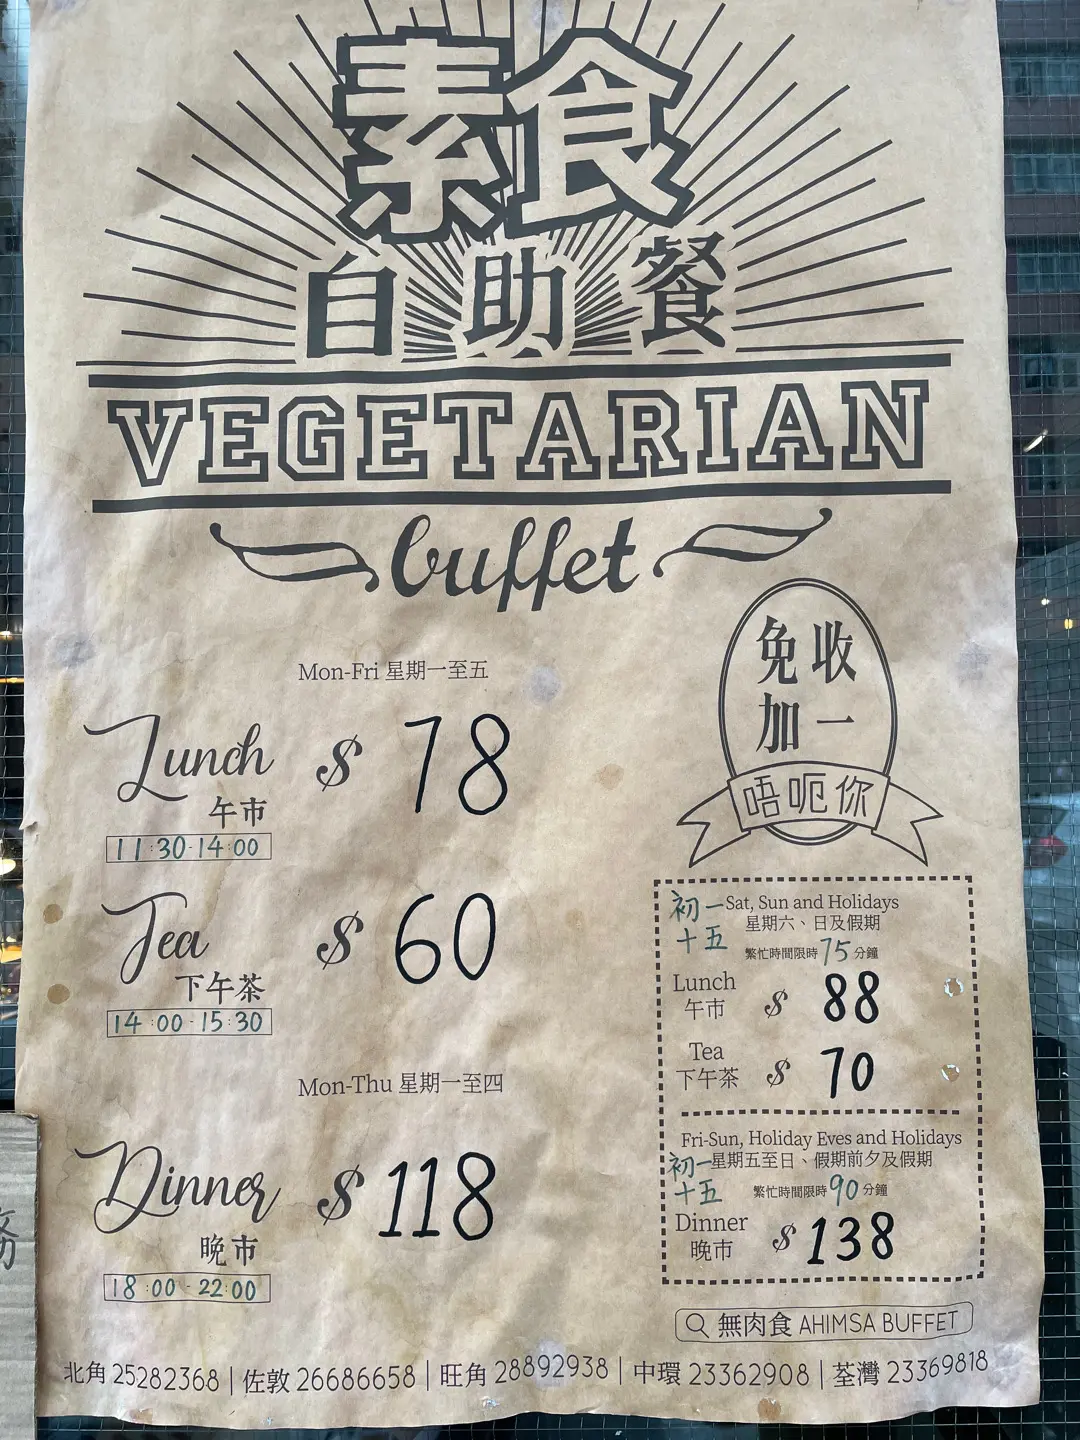 素食
自助餐
VEGETARIAN
buffet
免收
加一
唔呃你
Mon-Fri 星期一至五
Lunch $ 78
午市
11:30-14:00
Tea $ 60
下午茶
14:00-15:30
Mon-Thu 星期一至四
Dinner $ 118
晚市
18:00-22:00
初一 Sat, Sun and Holidays
十五 星期六、日及假期
繁忙時間限時75分鐘
Lunch
午市 $ 88
Tea
下午茶 $ 70
Fri-Sun, Holiday Eves and Holidays
初一 星期五至日、假期前夕及假期
十五 繁忙時間限時90分鐘
Dinner
晚市 $ 138
無肉食 AHIMSA BUFFET
北角 25282368 | 佐敦 26686658 | 旺角 28892938 | 中環 23362908 | 荃灣 23369818
務